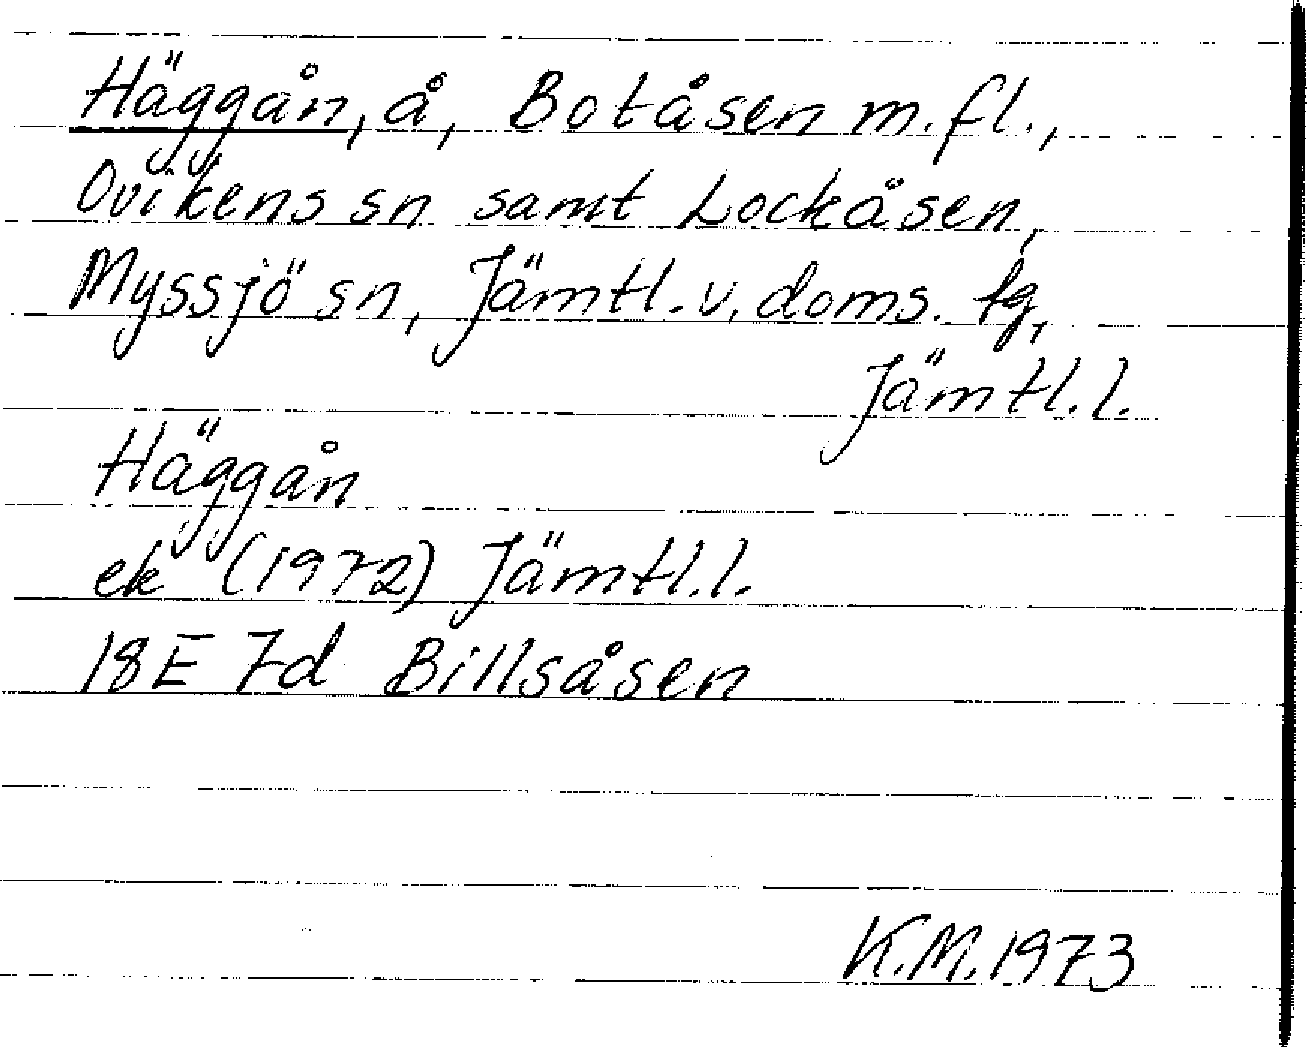 Häggån, å, Botåsen m.fl.,
Ovikens sn samt Lockåsen,
Myssjö sn, Jämtl. v. doms. tg,
Jämtl. l.
Häggån
ek (1972) Jämtl. l.
18E 7d Billsåsen
K.M. 1973